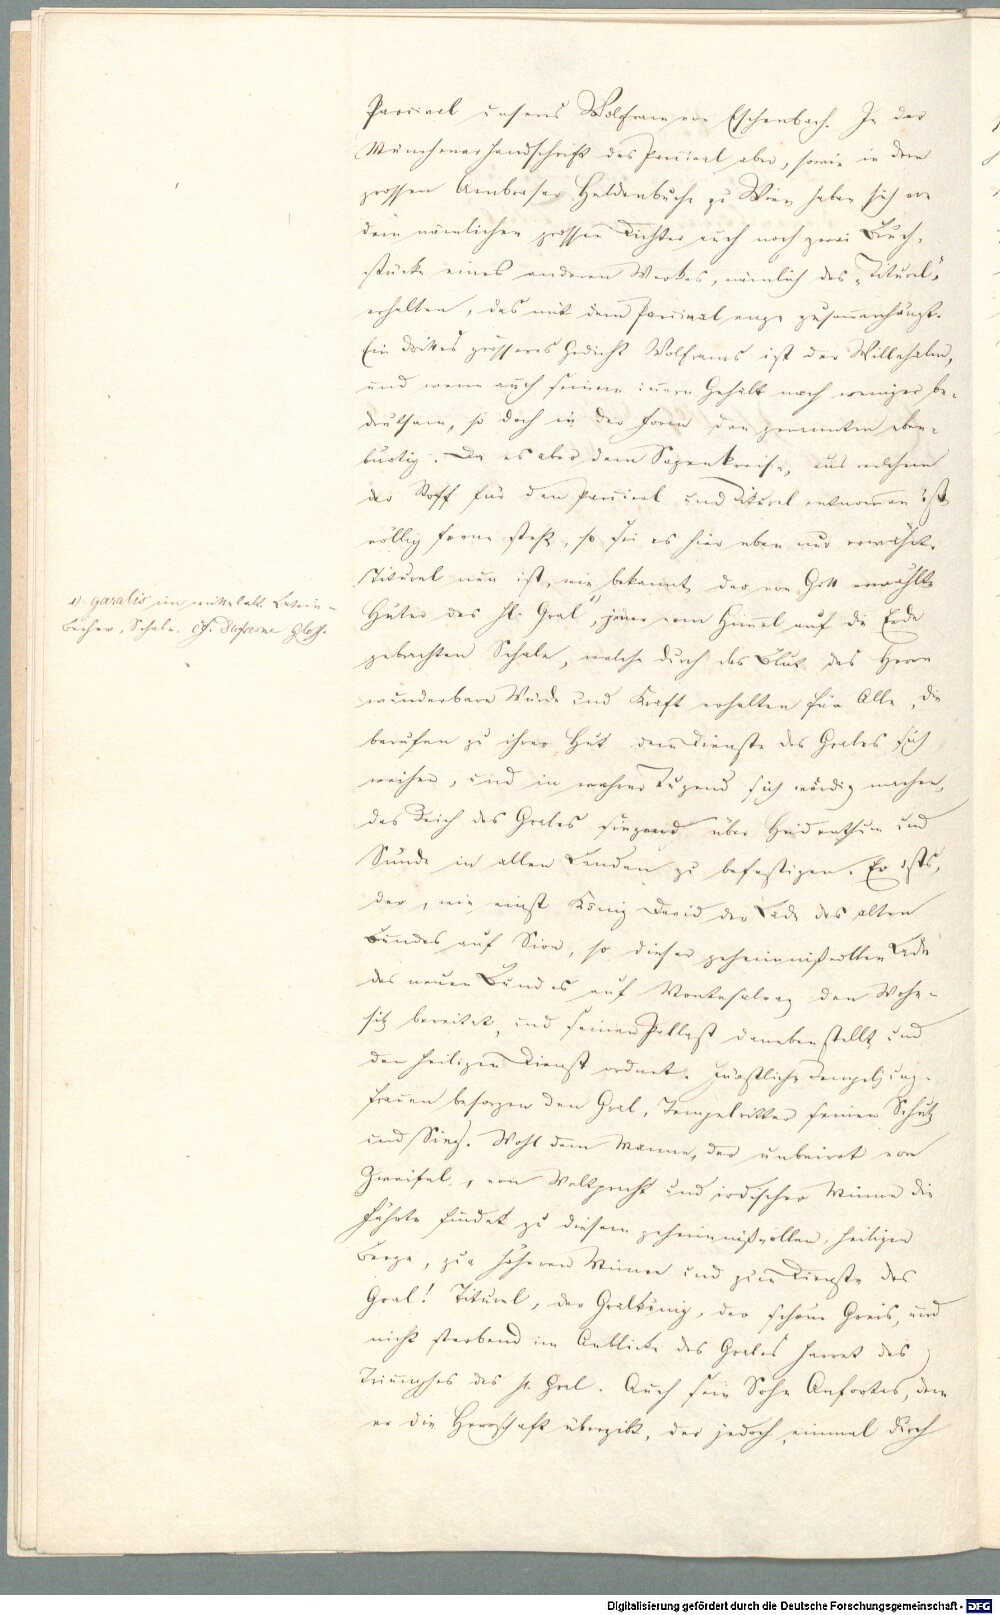 Parcival unseres Wolfram von Eschenbach. In der
Münchenerhandschrift des Parcival aber, sowie in dem
grossen Ambraser Heldenbuche zu Wien haben sich von
dem nämlichen grossen Dichter auch noch zwei Bruch-
stücke eines anderen Werkes, nämlich des „Titurel“
erhalten, das mit dem Parcival enge zusammenhängt.
Ein drittes grösseres Gedicht Wolframs ist der Willehalm,
und wenn auch seinem innern Gehalt nach weniger be-
deutsam, so doch in der Form den genannten eben-
bürtig. Da es aber dem Sagenkreise, aus welchem
der Stoff für den Parcival und Titurel entnommen ist
völlig ferne steht, so sei es hier eben nur erwähnt.
Titurel nun ist, wie bekannt, der von Gott erwählte
1) garalis im mittelalt. Latein =
Becher, Schale. Cf. Dufresne Gloss.
Hüter des hl. Gral¹⁾, jener vom Himmel auf die Erde
gebrachten Schale, welche durch das Blut des Herrn
wunderbare Würde und Kraft erhalten für Alle, die
berufen zu ihrer Hut dem Dienste des Grales sich
weihen, und in wahrer Tugend sich würdig machen,
das Reich des Grales siegend über Heidenthum und
Sünde in allen Landen zu befestigen. Er ists,
der, wie einst König David der Lade des alten
Bundes auf Sion, so dieser geheimnißvollen Lade
des neuen Bundes auf Montsalvag den Wohn-
sitz bereitet, und seinen Pallast daneben stellt und
den heiligen Dienst ordnet. Fürstliche Tempeljung-
frauen besorgen den Gral, Tempelritter seinen Schutz
und Sieg. Wohl dem Manne, der unbeirrt von
Zweifel, von Weltpracht und irdischer Minne die
Fährte findet zu diesem geheimnißvollen, heiligen
Berge, zur höheren Minne und zum Dienste des
Gral! Titurel, der Gralkönig, der schöne Greis, und
nicht sterbend im Anblicke des Grales harret des
Triumphes des hl. Gral. Auch sein Sohn Anfortas, dem
er die Herrschaft übergibt, der jedoch einmal durch
Digitalisierung gefördert durch die Deutsche Forschungsgemeinschaft - DFG